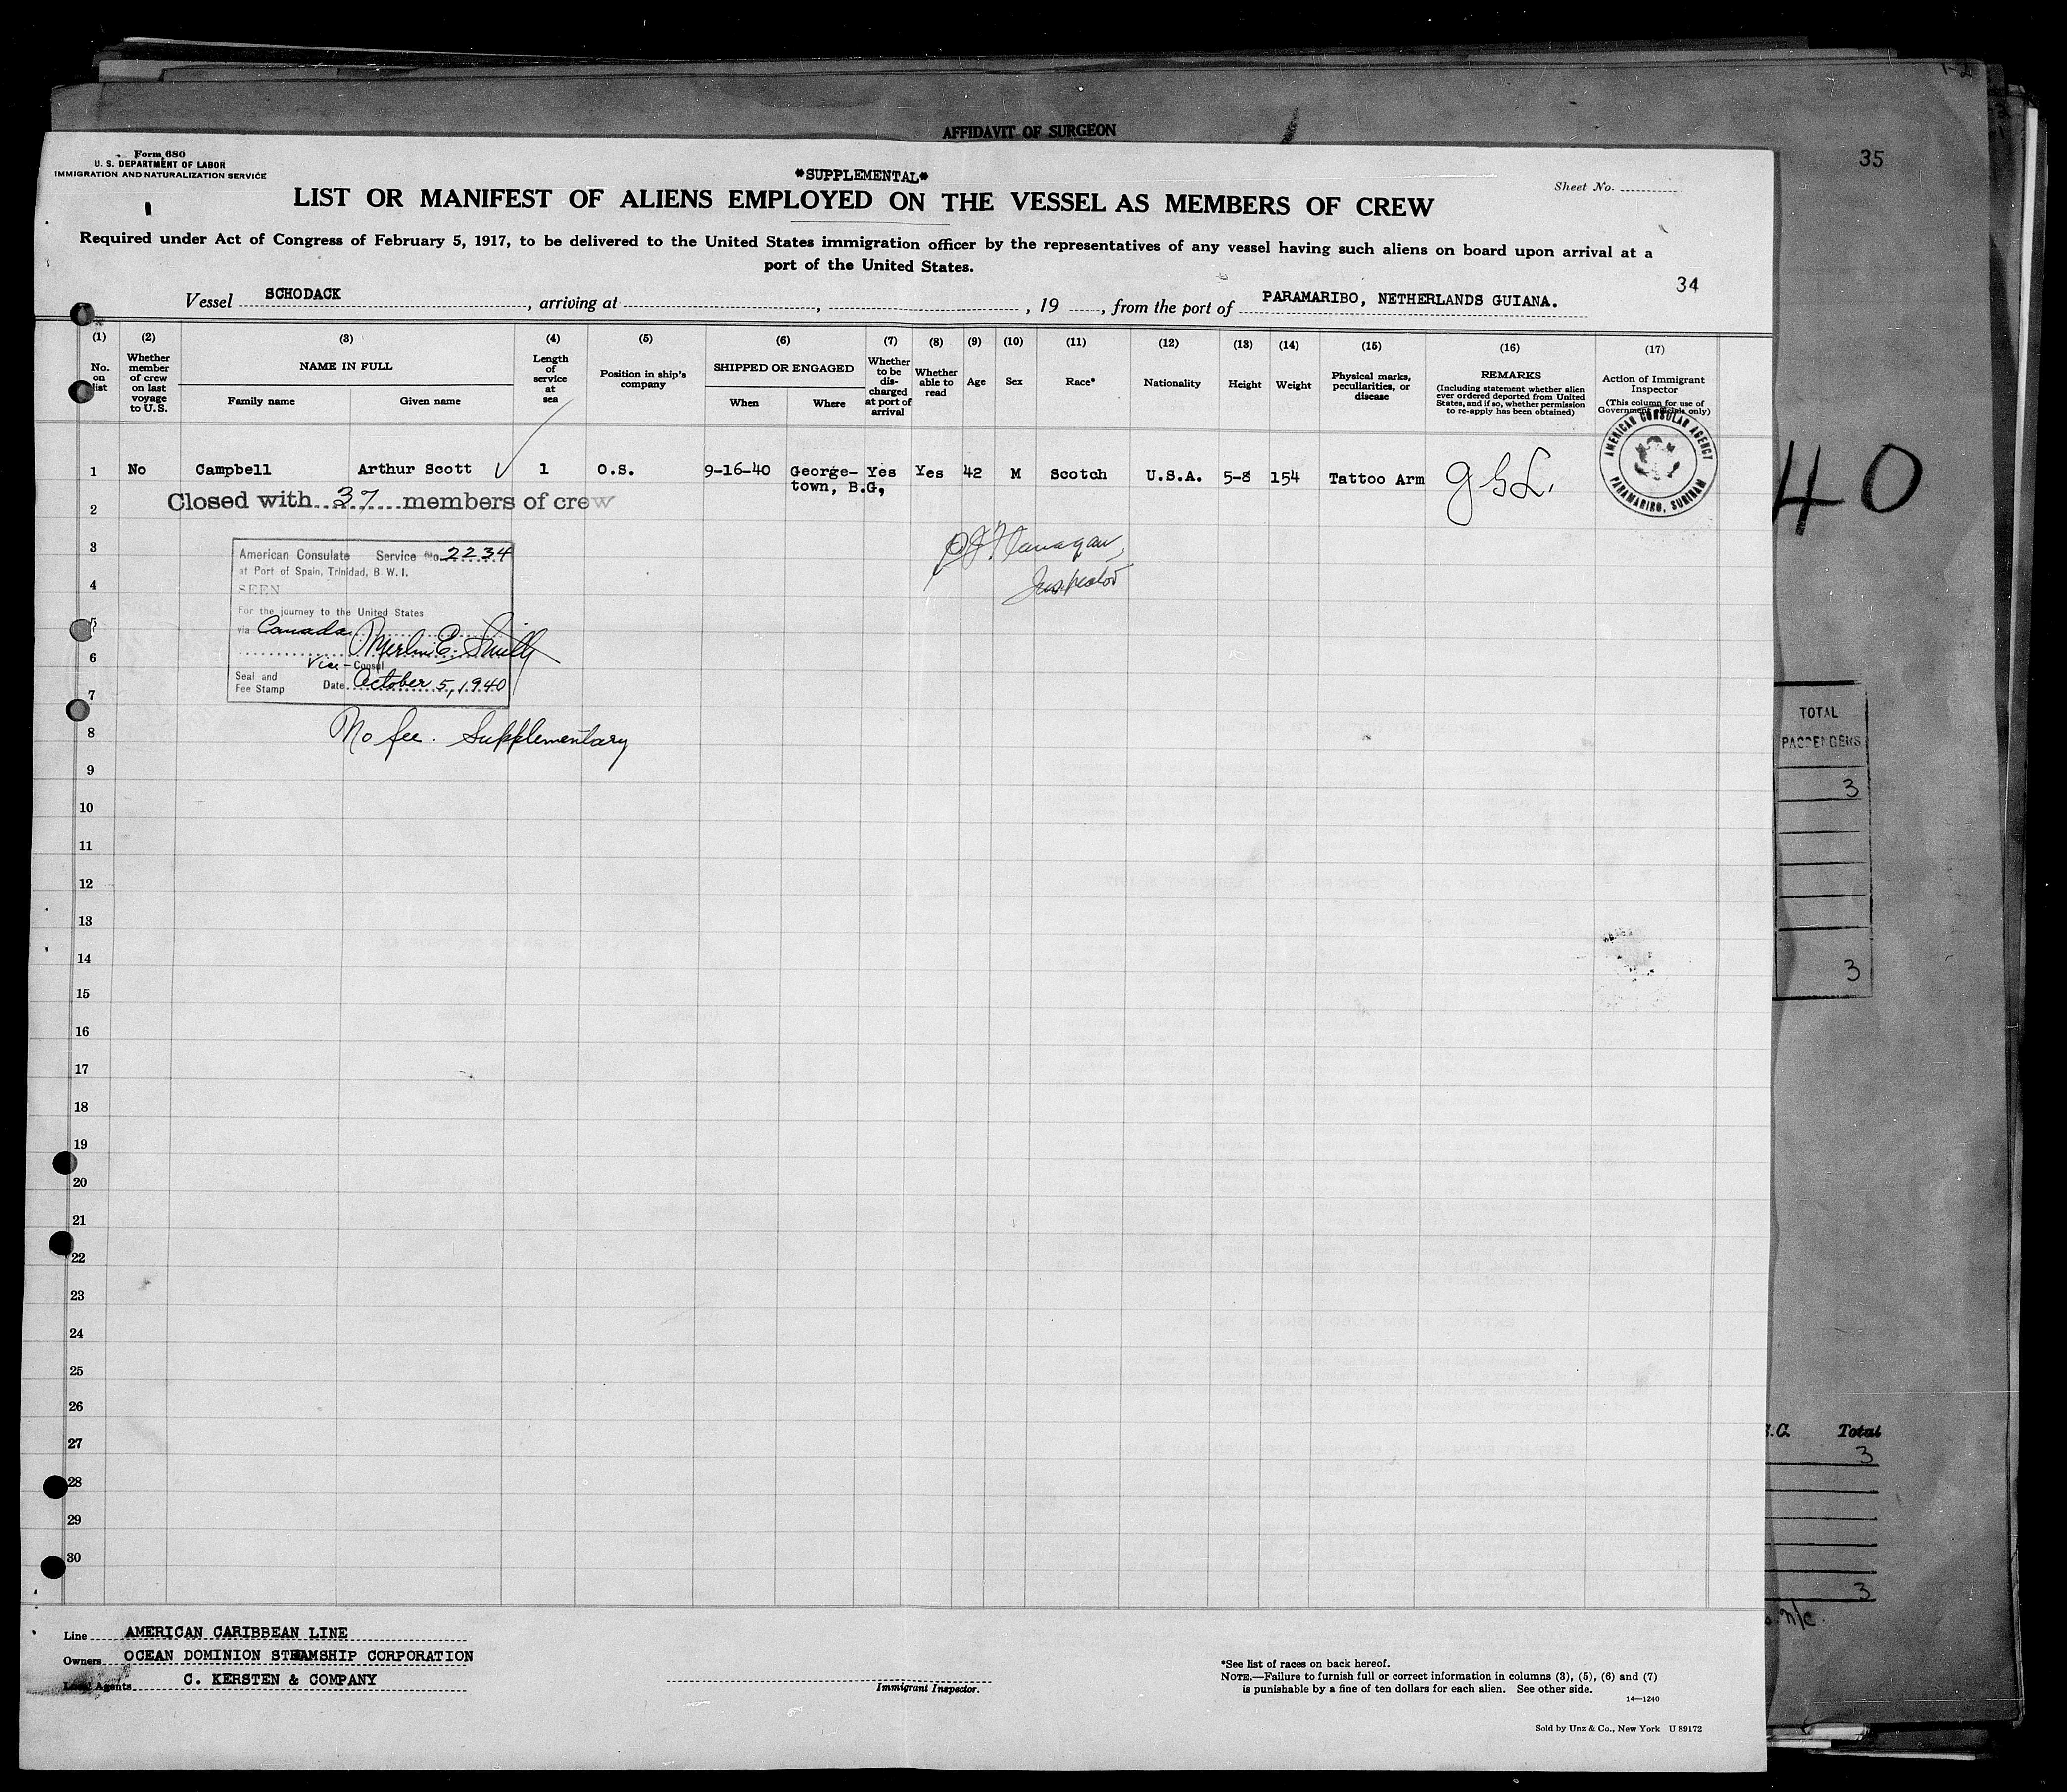 AFFIDAVIT OF SURGEON
35
Form 680
U. S. DEPARTMENT OF LABOR
IMMIGRATION AND NATURALIZATION SERVICE
*SUPPLEMENTAL*
Sheet No.
LIST OR MANIFEST OF ALIENS EMPLOYED ON THE VESSEL AS MEMBERS OF CREW
Required under Act of Congress of February 5, 1917, to be delivered to the United States immigration officer by the representatives of any vessel having such aliens on board upon arrival at a
port of the United States.
34
Vessel SCHODACK, arriving at , , 19 , from the port of PARAMARIBO, NETHERLANDS GUIANA.
(1) (2) (3) (4) (5) (6) (7) (8) (9) (10) (11) (12) (13) (14) (15) (16) (17)
No. on list
Whether member of crew on last voyage to U.S.
NAME IN FULL
Family name
Given name
Length of service at sea
Position in ship's company
SHIPPED OR ENGAGED
When
Where
Whether to be discharged at port of arrival
Whether able to read
Age
Sex
Race*
Nationality
Height
Weight
Physical marks, peculiarities, or disease
REMARKS
(Including statement whether alien ever ordered deported from United States, and if so, whether permission to re-apply has been obtained)
Action of Immigrant Inspector
(This column for use of Government officials only)
AMERICAN CONSULAR AGENCY
PARAMARIBO, SURINAM
1 No Campbell Arthur Scott 1 O.S. 9-16-40 George- Yes Yes 42 M Scotch U.S.A. 5-8 154 Tattoo Arm
town, B.G,
Closed with 37 members of crew
2
3
4
5
6
7
8
9
10
11
12
13
14
15
16
17
18
19
20
21
22
23
24
25
26
27
28
29
30
American Consulate Service No. 2234
at Port of Spain, Trinidad, B W. I.
SEEN
For the journey to the United States
via Canada
Merlin E. Smith
Vice-Consul
Seal and
Fee Stamp
Date October 5, 1940
No fee. Supplementary
Flanagan,
Inspector
40
TOTAL
PASSENGERS
3
3
Total
3
3
n/c.
Line AMERICAN CARIBBEAN LINE
Owners OCEAN DOMINION STEAMSHIP CORPORATION
Local Agents C. KERSTEN & COMPANY
Immigrant Inspector.
*See list of races on back hereof.
NOTE.—Failure to furnish full or correct information in columns (3), (5), (6) and (7)
is punishable by a fine of ten dollars for each alien. See other side.
14—1240
Sold by Unz & Co., New York U 89172